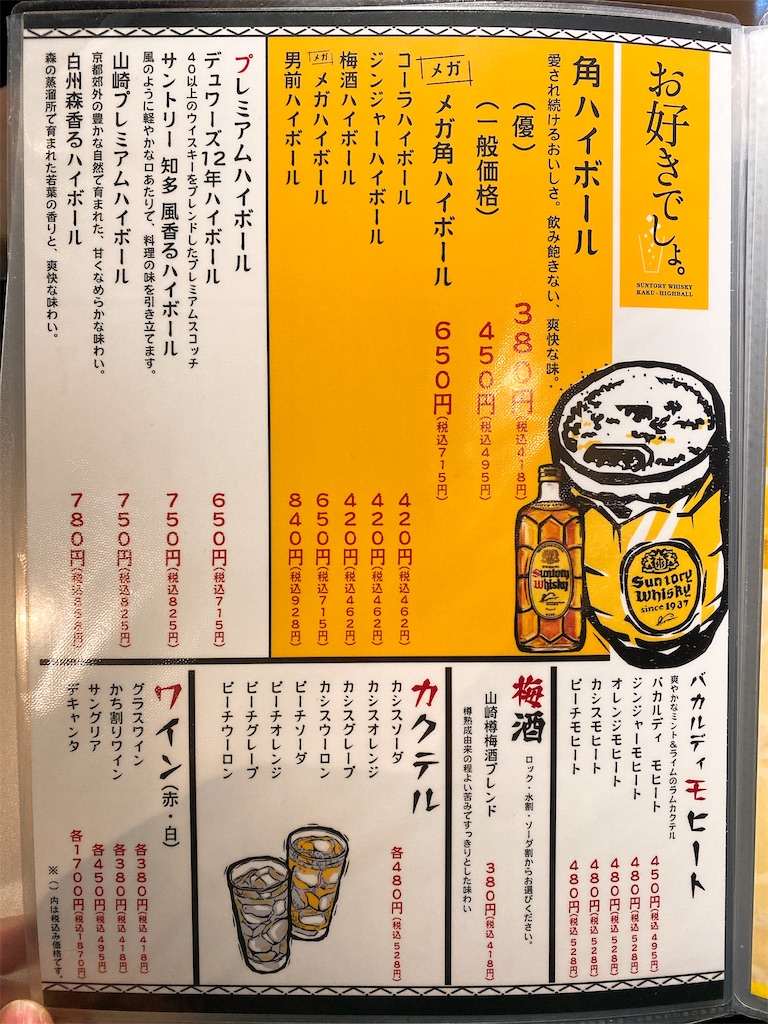 お好きでしょ。
SUNTORY WHISKY
KAKU-HIGHBALL
角ハイボール
愛され続けるおいしさ。飲み飽きない、爽快な味。
(優) 380円(税込418円)
(一般価格) 450円(税込495円)
メガ メガ角ハイボール 650円(税込715円)
コーラハイボール 420円(税込462円)
ジンジャーハイボール 420円(税込462円)
梅酒ハイボール 420円(税込462円)
メガ メガハイボール 650円(税込715円)
男前ハイボール 840円(税込928円)
Suntory
Whisky
Suntory
Whisky
since 1937
プレミアムハイボール
デュワーズ12年ハイボール 650円(税込715円)
40以上のウィスキーをブレンドしたプレミアムスコッチ
サントリー 知多 風香るハイボール 750円(税込825円)
風のように軽やかな口あたりで、料理の味を引き立てます。
山崎プレミアムハイボール 750円(税込825円)
京都郊外の豊かな自然で育まれた、甘くなめらかな味わい。
白州森香るハイボール 780円(税込858円)
森の蒸溜所で育まれた若葉の香りと、爽快な味わい。
バカルディ モヒート
爽やかなミント&ライムのラムカクテル
バカルディ モヒート 450円(税込495円)
ジンジャーモヒート 480円(税込528円)
オレンジモヒート 480円(税込528円)
カシスモヒート 480円(税込528円)
ピーチモヒート 480円(税込528円)
梅酒
ロック・水割・ソーダ割からお選びください。
山崎樽梅酒ブレンド 380円(税込418円)
樽熟成由来の程よい苦みですっきりとした味わい
カクテル
カシスソーダ 各480円(税込528円)
カシスオレンジ
カシスグレープ
カシスウーロン
ピーチソーダ
ピーチオレンジ
ピーチグレープ
ピーチウーロン
ワイン(赤・白)
グラスワイン 各380円(税込418円)
かち割りワイン 各380円(税込418円)
サングリア 各450円(税込495円)
デキャンタ 各1700円(税込1870円)
※( )内は税込み価格です。